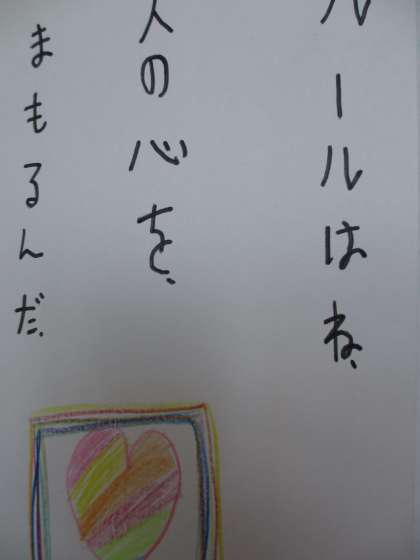 ルールはね、
人の心を、
まもるんだ、